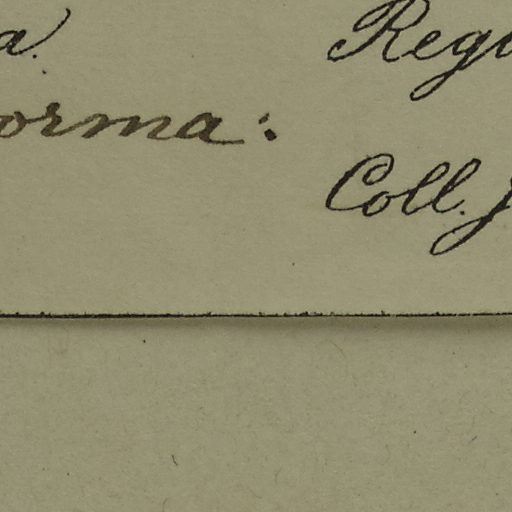 a. Regi
orma:
Coll. J